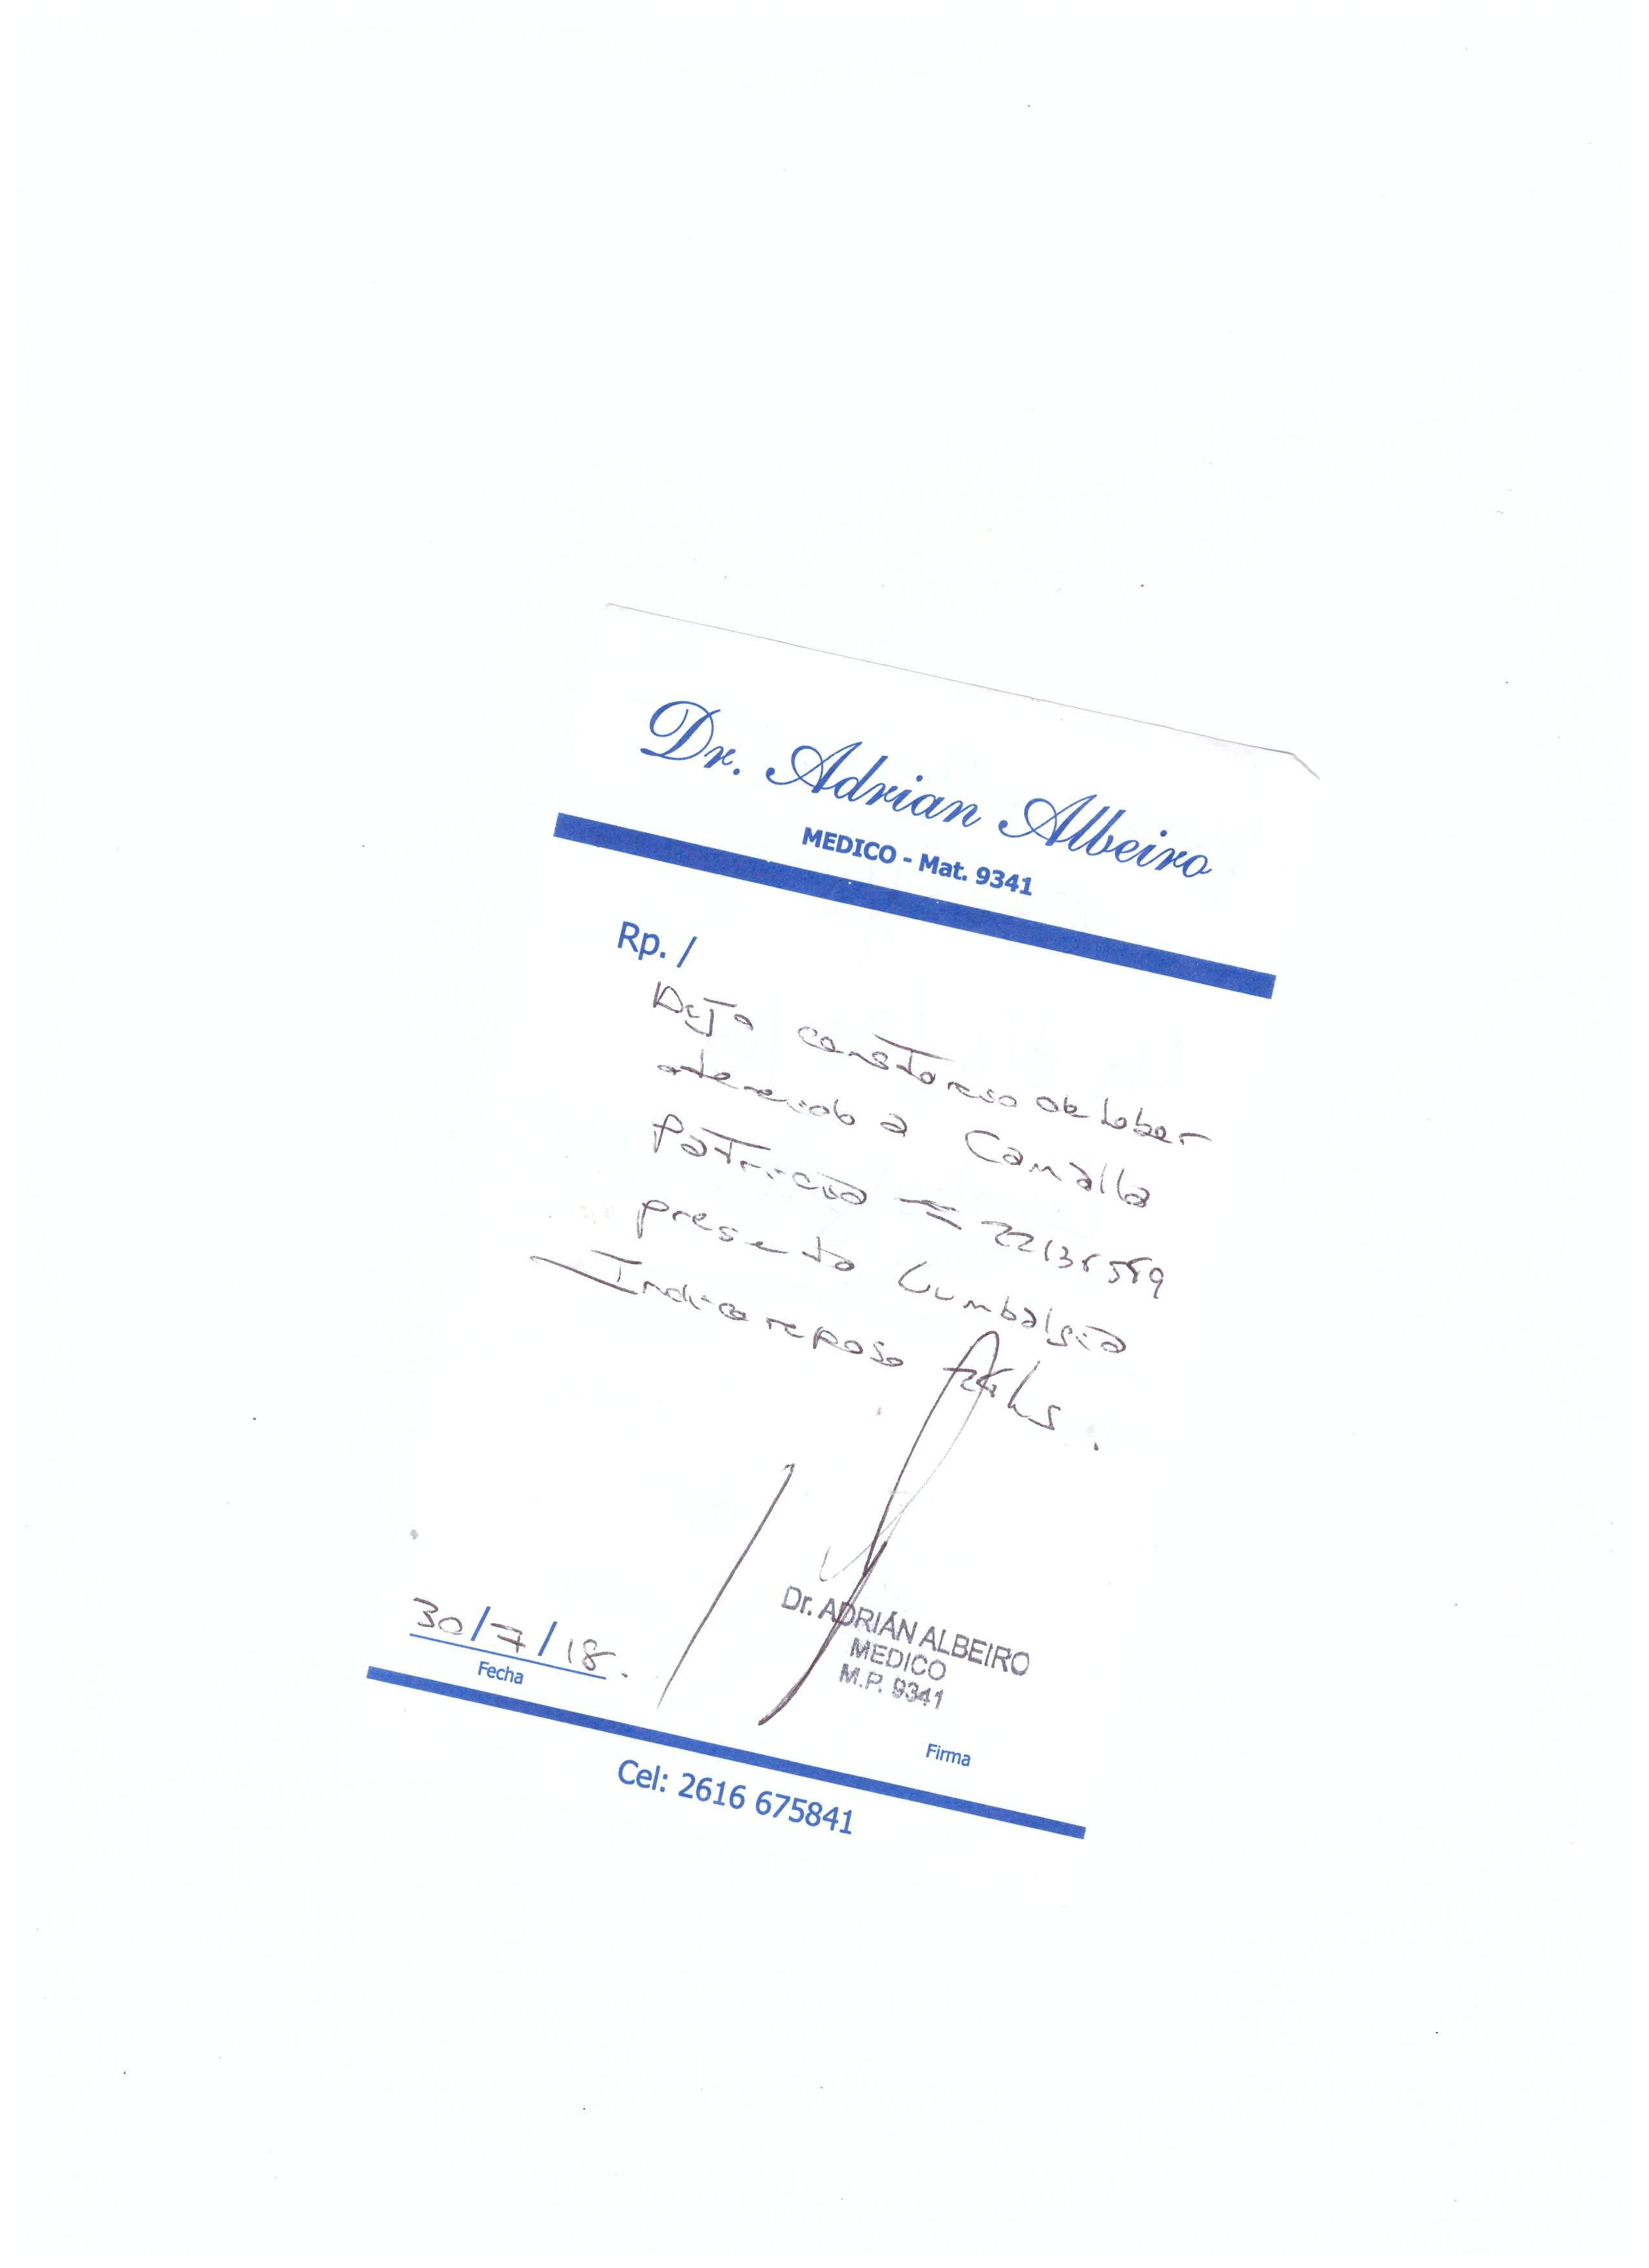 Dr. Adrian Albeiro
MEDICO - Mat. 9341
Rp. /
Dejo constancia de haber
atendido a Camalla
Patricia
presenta Lumbalgia
Indico reposo hs.
30/7/18.
Fecha
Dr. ADRIÁN ALBEIRO
MEDICO
M.P. 9341
Firma
Cel: 2616 675841